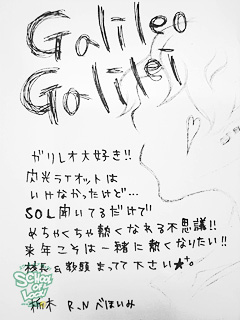 Galileo
Galilei
ガリレオ大好き!!
閃光ライオットは
いけなかったけど…
SOL聞いてるだけで
めちゃくちゃ熱くなれる不思議!!
来年こそは一緒に熱くなりたい!!
校長&教頭 まってて下さい★+。
栃木 R.N べほいみ
SCHOOL
OF
LOCK!